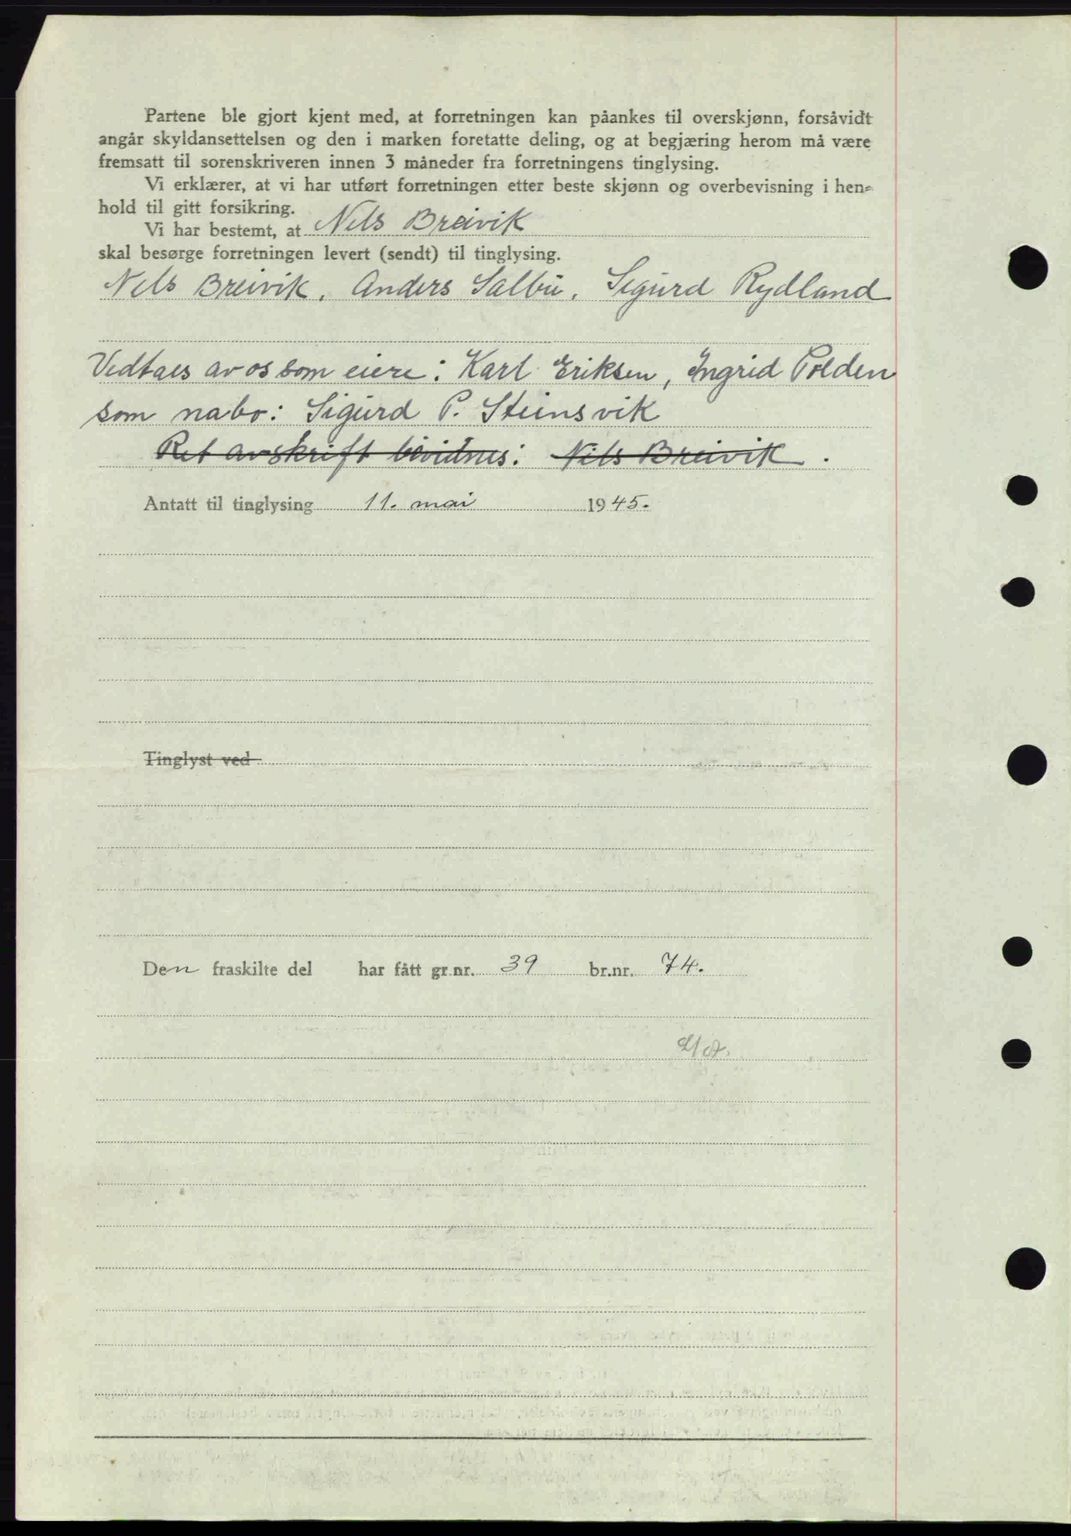 Partene ble gjort kjent med, at forretningen kan påankes til overskjønn, forsåvidt
angår skyldansettelsen og den i marken foretatte deling, og at begjæring herom må være
fremsatt til sorenskriveren innen 3 måneder fra forretningens tinglysing.
Vi erklærer, at vi har utført forretningen etter beste skjønn og overbevisning i hen-
hold til gitt forsikring.
Vi har bestemt, at Nils Breivik
skal besørge forretningen levert (sendt) til tinglysing.
Nils Breivik, Anders Salbu, Sigurd Rydland
Vedtaes av os som eiere: Karl Eriksen, Ingrid Polden
som nabo: Sigurd P. Steinsvik
Ret avskrift bevidnes: Nils Breivik.
Antatt til tinglysing 11. mai 1945.
Tinglyst ved
Den fraskilte del har fått gr.nr. 39 br.nr. 74.